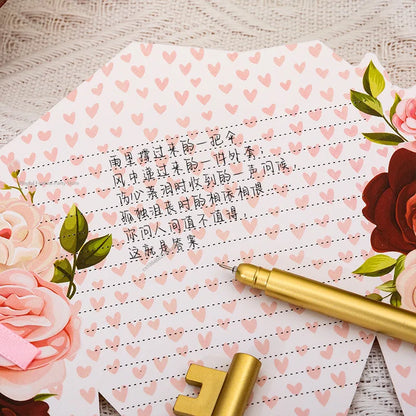 雨里撑过来的一把伞
风中递过来的一件外套,
伤心落泪时收到的一声问候,
孤独沮丧时的相依相偎……
你问人间值不值得,
这就是答案